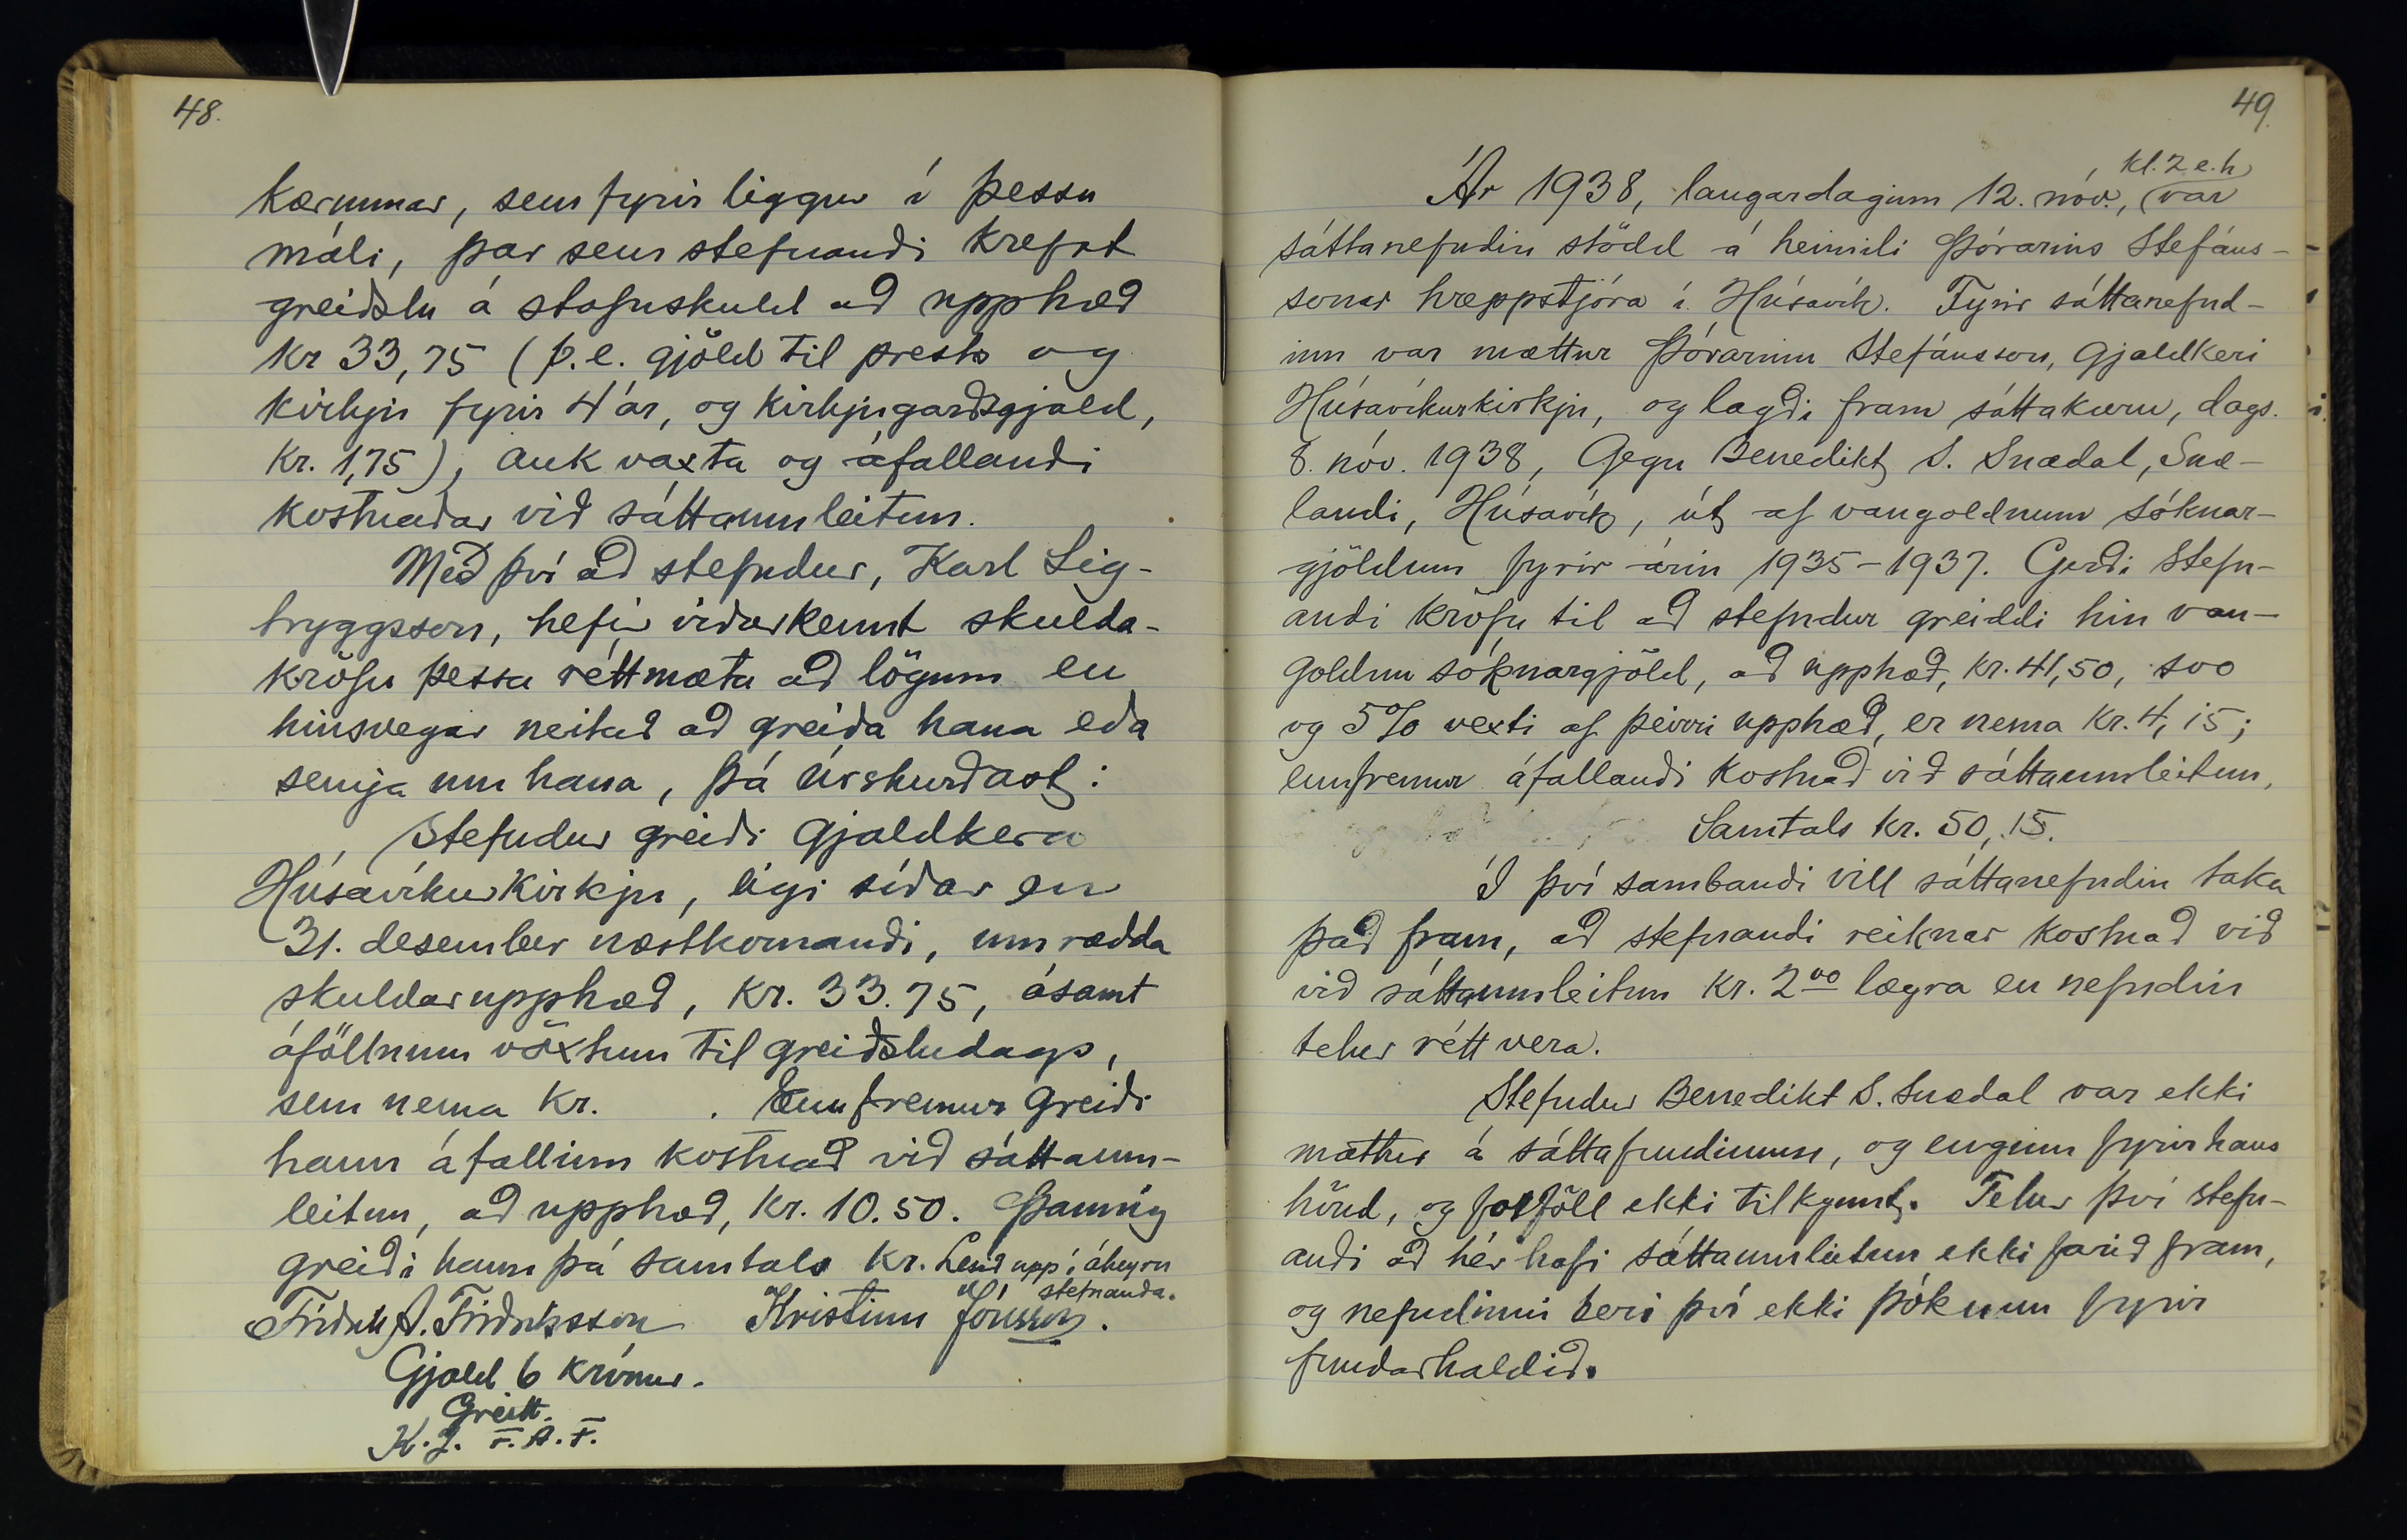 48.
kærunnar, sem fyrir liggur í þessu
máli, þar sem stefnandi krefst
greiðslu á stofnskuld að upphæð
kr 33,75 (þ.e. gjöld til prests og
kirkju fyrir 4 ár, og kirkjugarðsgjald,
kr. 1,75), auk vaxta og áfallandi
kostnaðar við sáttaumleitun.
Með því að stefndur, Karl Sig-
tryggsson, hefir viðurkennt skulda-
kröfu þessa réttmæta að lögum en
hinsvegar neitað að greiða hana eða
semja um hana, þá úrskurðast:
Stefndur greiði gjaldkera
Húsavíkurkirkju, eigi síðar en
31. desember næstkomandi, umrædda
skuldarupphæð, kr. 33.75, ásamt
áföllnum vöxtum til greiðsludags,
sem nema kr. . Ennfremur greiði
hann áfallinn kostnað við sáttaum-
leitun, að upphæð, kr. 10.50. Þannig
greiði hann þá samtals kr. Lesið upp í áheyrn
stefnanda.
Friðrik A. Friðriksson Kristinn Jónsson.
Gjald 6 krónur.
Greitt.
K.J. F.A.F.
49.
kl. 2 e.h
Ár 1938, laugardaginn 12. nóv., var
sáttanefndin stödd á heimili Þórarins Stefáns-
sonar hreppstjóra í Húsavík. Fyrir sáttanefnd-
inn var mættur Þórarinn Stefánsson, gjaldkeri
Húsavíkurkirkju, og lagði fram sáttakæru, dags.
8. nóv. 1938, Gegn Benedikt S. Snædal, Snæ-
landi, Húsavík, út af vangoldnum sóknar-
gjöldum fyrir árin 1935-1937. Gerði stefn-
andi kröfu til að stefndur greiddi hin van-
goldnu sóknargjöld, að upphæð, kr. 41,50, svo
og 5% vexti af þeirri upphæð, er nema kr. 4,15;
ennfremur áfallandi kostnað við sáttaumleitun,
Samtals kr. 50,15.
Í því sambandi vill sáttanefndin taka
það fram, að stefnandi reiknar kostnað við
við sáttaumleitun kr. 200 lægra en nefndin
telur rétt vera.
Stefndur Benedikt S. Snædal var ekki
mættur á sáttafundinum, og enginn fyrir hans
hönd, og forföll ekki tilkynnt. Telur því stefn-
andi að hér hafi sáttaumleitun ekki farið fram,
og nefndinni beri því ekki þóknun fyrir
fundarhaldið.